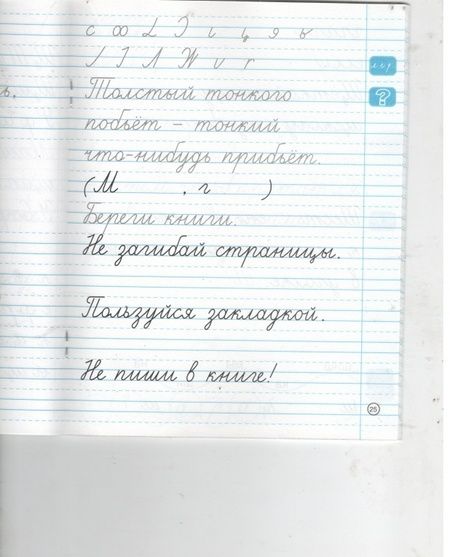 Толстый тонкого
побьёт – тонкий
что-нибудь прибьёт.
(М , г )
Береги книги.
Не загибай страницы.
Пользуйся закладкой.
Не пиши в книге!
25